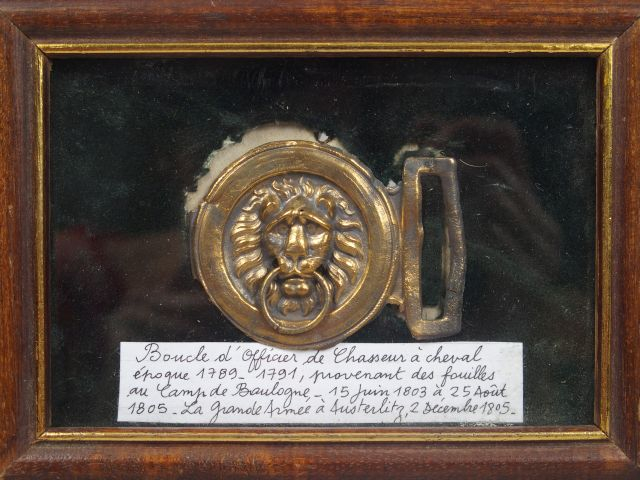 Boucle d'Officier de Chasseur à cheval
époque 1789-1791, provenant des fouilles
au Camp de Baulogne - 15 Juin 1803 à 25 Août
1805 - La Grande Armée à Austerlitz, 2 Décembre 1805 -